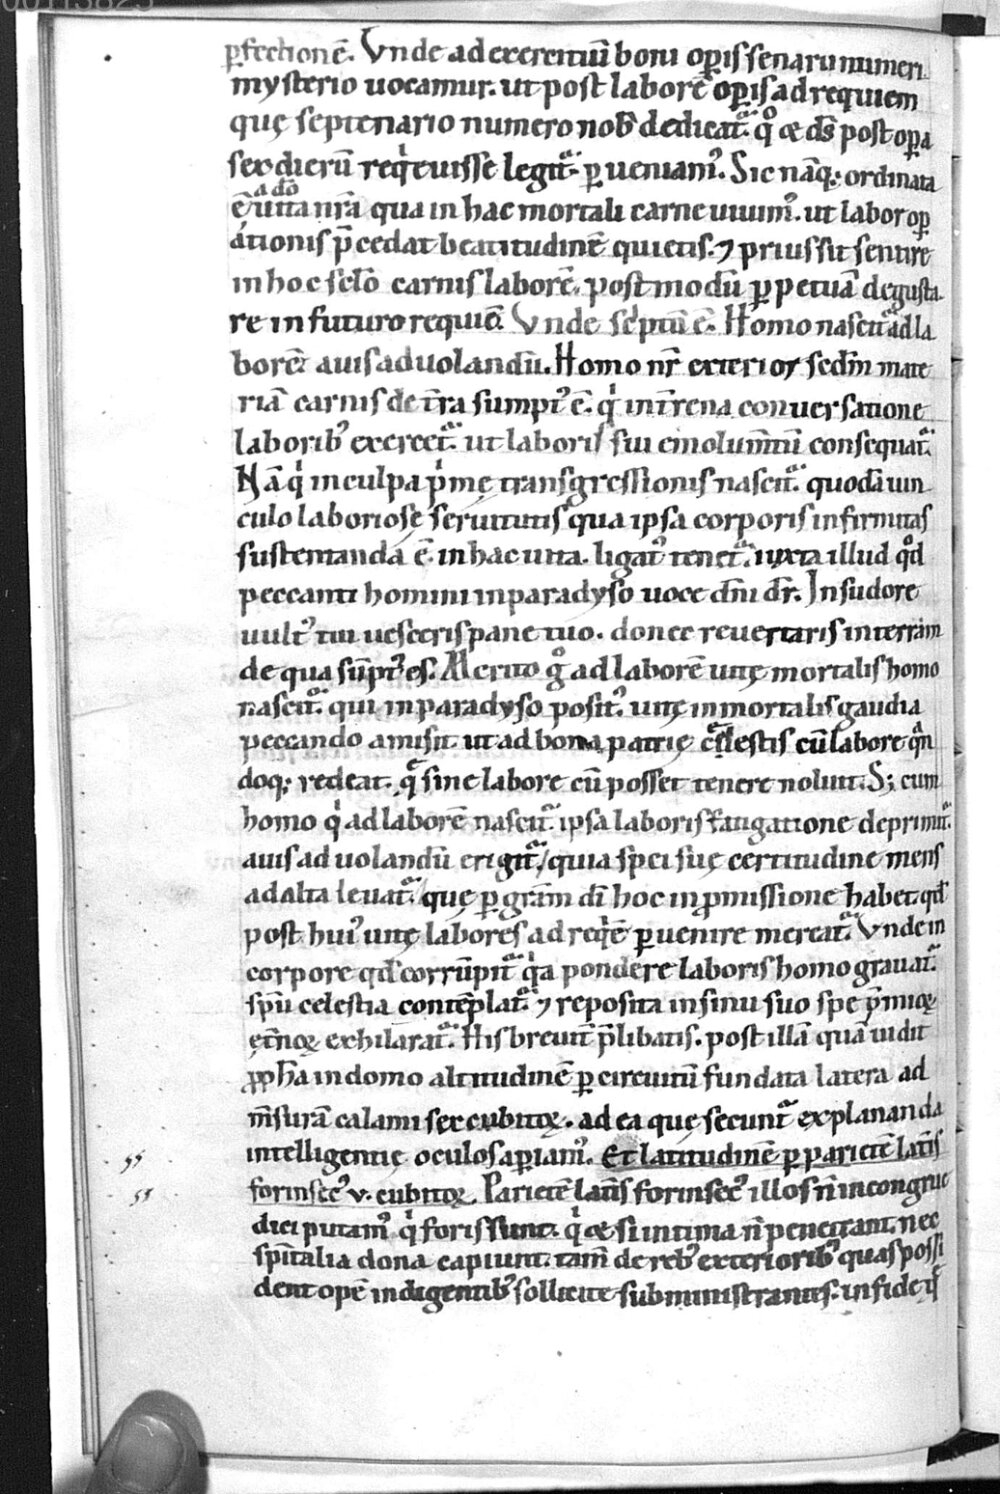 00113825
ꝑfectionē. Vnde ad exercitiū boni oꝑis senarii numeri
mysterio uocamur. ut post laborē oꝑis ad requiem
quę septenario numero nob̄ dedicat᷑. qͦ & ds̄ post oꝑa
sex dierū reqͥeuisse legit᷑. ꝑueniamꝰ. Sic nāq; ordinata
ē a dō uita nr̄a qua in hac mortali carne uiuimꝰ. ut labor oꝑ
ationis p̄cedat beatitudinē quietis. ⁊ prius sit sentire
in hoc sclō carnis laborē. postmodū ꝑpetuā degusta
re in futuro requiē. Vnde scͥptū ē. Homo nascit᷑ ad la
borē. auis ad uolandū. Homo nr̄ exterior sedm̄ mate
riā carnis de tr̄a sumptꝰ ē. qͥ in tr̄ena conuersatione
laboribꝰ exercet᷑. ut laboris sui emolum̄tū consequat᷑.
Nā qͥ in culpa pͥmę transgressionis nascit᷑. quodā uin
culo laboriosę seruitutis qua ipsa corporis infirmitas
sustentanda ē in hac uita. ligatꝰ tenet᷑. iuxta illud qͦd
peccanti homini in paradyso uoce dn̄i dr̄. In sudore
uultꝰ tui uesceris pane tuo. donec reuertaris in terram
de qua sūptꝰ es. Merito gͦ ad laborē uitę mortalis homo
nascit᷑. qui in paradyso positꝰ. uitę inmortalis gaudia
peccando amisit. ut ad bona patrię cęlestis cū labore qn̄
doq; redeat. qͣ sine labore cū posset tenere noluit. S; cum
homo qͥ ad laborē nascit᷑. ipsa laboris fatigatione deprimit᷑.
auis ad uolandū erigit᷑, quia spei suę certitudine mens
ad alta leuat᷑, quę ꝑ gr̄am dī hoc in ꝓmissione habet. qd̄
post huiꝰ uitę labores ad reqͥē ꝑuenire mereat᷑. Vnde in
corpore qd̄ corrūpit᷑ qͥa pondere laboris homo grauat᷑.
spū celestia contēplat᷑. ⁊ reposita in sinu suo spe p̄mioꝝ
ęt̄noꝝ exhilarat᷑. His breuit̄ p̄libatis. post illā quā uidit
ꝓph̄a in domo altitudinē ꝑ circuitū fundata latera ad
m̄surā calami sex cubitoꝝ. ad ea quę secunt᷑ explananda
intelligentię oculos aꝑiamꝰ. Et latitudinē ꝑ parietē lat̄is
forinsecꝰ v. cubitoꝝ. Parietē lat̄is forinsecꝰ illos n̄ incongrue
dici putamꝰ qͥ foris sunt. qͥ & si intima n̄ penetrant. nec
sp̄italia dona capiunt. tam̄ de rebꝰ exterioribꝰ quas possi
dent opē indigentibꝰ sollicite subministrantes. in fide ipsi